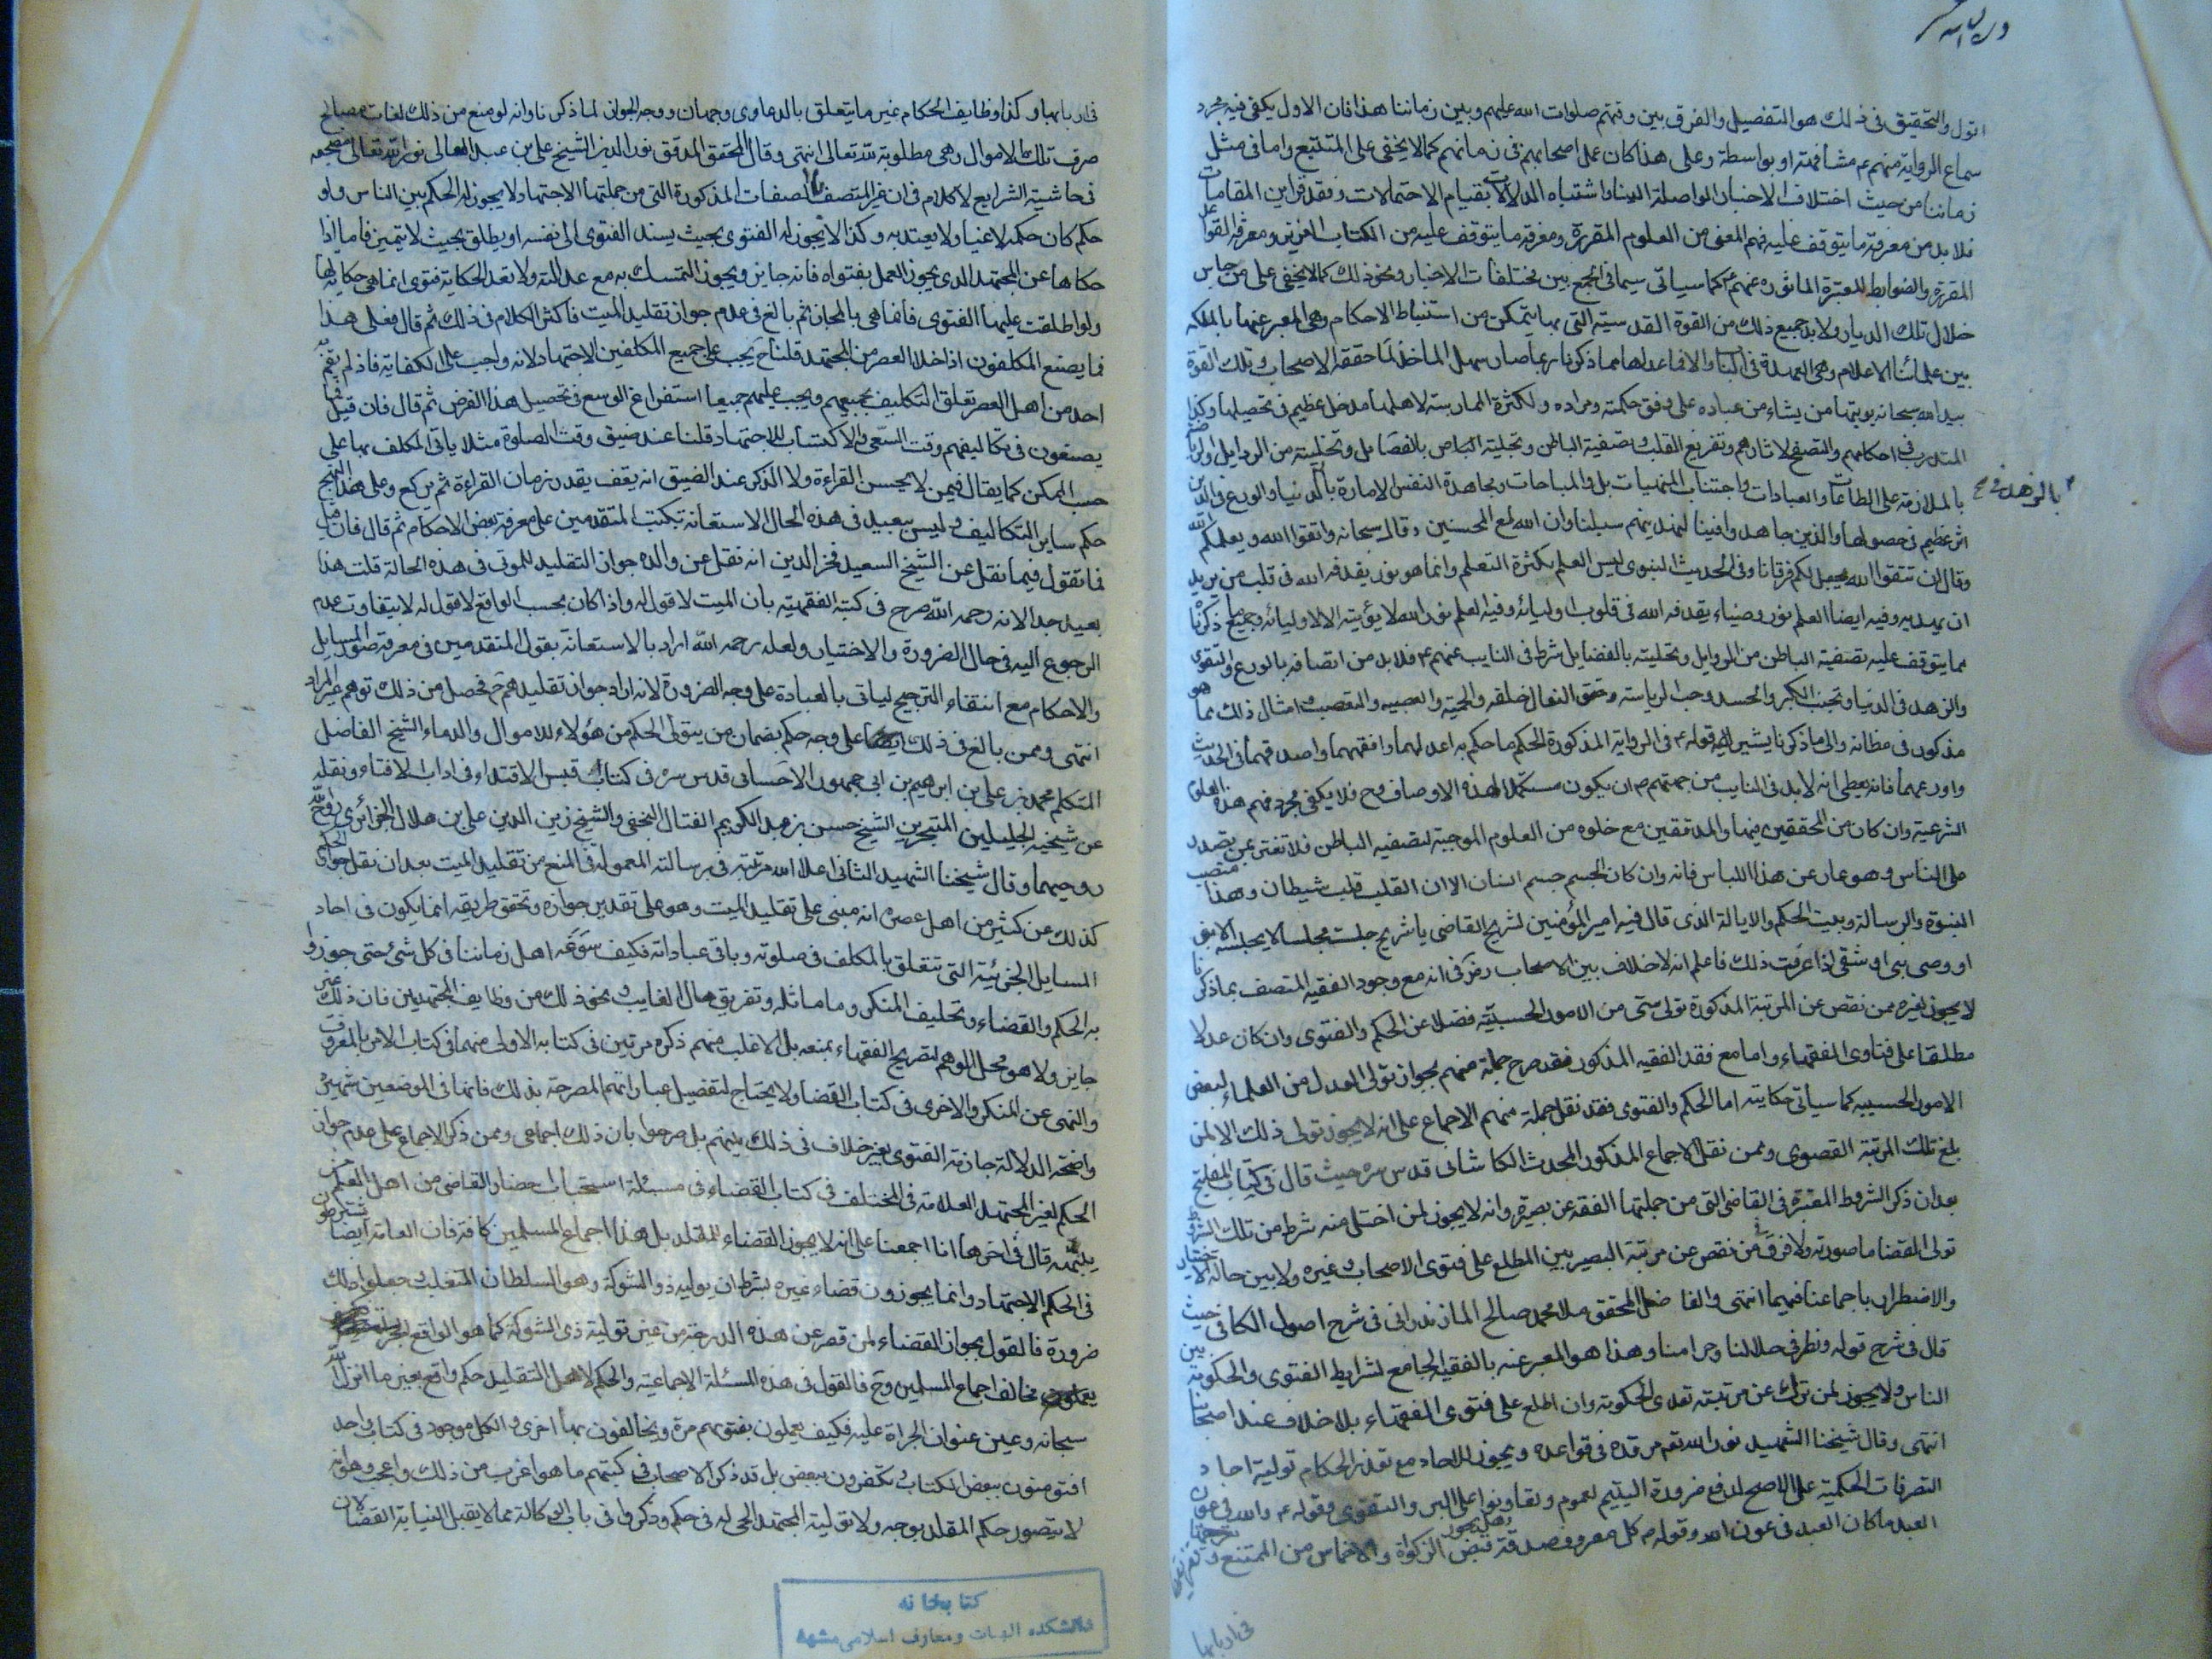 اقول والتحقيق فى ذلك هو التفصيل والفرق بين وقتهم صلوات الله عليهم وبين زماننا هذا فان الاول يكفى فيه مجرد
سماع الرواية منهم ع مشافهة او بواسطة وعلى هذا كان عمل اصحابهم فى زمانهم كما لا يخفى على المتتبع واما فى مثل
زماننا من حيث اختلاف الاخبار الواصلة الينا واشتباه الدلالات بقيام الاحتمالات وفقد قراين المقامات
فلا بد من معرفة ما يتوقف عليه فهم المعنى من العلوم المقررة ومعرفة ما يتوقف عليه من الكتاب العزيز ومعرفة القواعد
المقررة والضوابط المعتبرة الماثوره عنهم ع كما سياتى سيما فى الجمع بين مختلفات الاخبار ونحو ذلك كما لا يخفى على من جاس
خلال تلك الديار ولا بد جميع ذلك من القوة القدسية التى بها يتمكن من استنباط الاحكام وهى المعبر عنها بالملكه
بين علمائنا الاعلام وهى العمدة فى الباب والا فما عداها مما ذكرنا ربما صار سهل الماخذ لما حققه الاصحاب وتلك القوة
بيد الله سبحانه يؤيتها من يشاء من عباده على وفق حكمته ومراده ولكثرة الممارسة لاهلها مدخل عظيم فى تحصيلها وكذا
المتدرب فى احكامهم والتصفح لاثارهم وتفريع القلب وتصفية الباطن وتحلية الباطن بالفضايل وتخليته من الرذايل والرياضة
بالملازمة على الطاعات والعبادات واجتناب المنهيات بل والمباحات ومجاهدة النفس الامارة بالدنيا والورع فى الدين
بالزهد فى
اثر عظيم فى حصولها والذين جاهدوا فينا لنهدينهم سبلنا وان الله لمع المحسنين وقال سبحانه واتقوا الله ويعلمكم الله
وقال ان تتقوا الله يجعل لكم فرقانا وفى الحديث النبوى ليس العلم بكثرة التعلم وانما هو نور يقذفه الله فى قلب من يريد
ان يهديه وفيه ايضا العلم نور وضياء يقذفه الله فى قلوب اوليائه وفيه العلم نور الله لا يؤتيه الا لاوليائه وجميع ما ذكرناه
مما يتوقف عليه تصفية الباطن من الرذايل وتحليته بالفضايل شرط فى النايب عنهم ع فلا بد من اتصافه بالورع والتقوى
والزهد فى الدنيا وتجنب الكبر والحسد وحب الرياسة وخفق النعال خلفه والحمية والعصبيه والتعصب وامثال ذلك مما هو
مذكور فى مظانه والى ما ذكرنا يشير اليه قوله ع فى الرواية المذكورة الحكم ما حكم به اعدلهما وافقههما واصدقهما فى الحديث
واورعهما فانه يعطى انه لا بد فى النايب من جهتهم ع ان يكون مستكملا لهذه الاوصاف وح فلا يكفى مجرد فهم هذه العلوم
الشرعية وان كان من المحققين فيها والمدققين مع خلوه من العلوم الموجبة لتصفيه الباطن فلا تغتر بمن تصدر
على الناس وهو عار عن هذا اللباس فانه وان كان الجسم جسم انسان الا ان القلب قلب شيطان وهذا منصب
النبوة والرسالة وبيت الحكم والايالة الذى قال فيه امير المؤمنين لشريح القاضى يا شريح جلست مجلسا لا يجلسه الا نبى
او وصى نبى او شقى اذا عرفت ذلك فاعلم انه لا خلاف بين الاصحاب رض فى انه مع وجود الفقيه المتصف بما ذكرنا
لا يجوز لغيره ممن نقص عن المرتبة المذكورة تولى شئ من الامور الحسبية فضلا عن الحكم والفتوى وان كان عدلا
مطلقا على فتاوى الفقهاء واما مع فقد الفقيه المذكور فقد صرح جملة منهم بجواز تولى العدل من العلماء لبعض
الامور الحسبيه كما سيأتى حكايته اما الحكم والفتوى فقد نقل جملة منهم الاجماع على انه لا يجوز تولى ذلك الا لمن
بلغ تلك المرتبة القصوى وممن نقل الاجماع المذكور المحدث الكاشانى قدس سره حيث قال فى كتاب المفاتيح
بعد ان ذكر الشروط المعتبرة فى القاضى التى من جملتها الفقه عن بصيرة وانه لا يجوز لمن اختل منه شرط من تلك الشروط
تولى القضا ما صورته ولا فرق فى من نقص عن مرتبة البصير بين المطلع على فتوى الاصحاب وغيره ولا بين حالة الاختيار
والاضطرار باجماعنا فيهما انتهى والفاضل المحقق ملا محمد صالح المازندرانى فى شرح اصول الكافى حيث
قال فى شرح قوله ونظر فى حلالنا وحرامنا وهذا هو المعبر عنه بالفقيه الجامع لشرايط الفتوى والحكومة بين
الناس ولا يجوز لمن نزل عن مرتبته تعدى الحكومة وان اطلع على فتوى الفقهاء بلا خلاف عند اصحابنا
انتهى وقال شيخنا الشهيد نور الله تع مرقده فى قواعده ويجوز للاحاد مع تعذر الحكام تولية احاد
التصرفات الحكمية على الاصح لدفع ضرورة اليتيم لعموم وتعاونوا على البر والتقوى وقوله ع والله فى عون
العبد ما كان العبد فى عون اخيه وقوله ص كل معروف صدقة وهل يجوز قبض الزكوة والاخماس من الممتنع وتفرقتها
فى اربابها
فى اربابها وكذا وظايف الحكام غير ما يتعلق بالدعاوى وجهان ووجه الجواز لما ذكرنا وانه لو منع من ذلك لفات مصالح
صرف تلك الاموال وهى مطلوبة لله تعالى انتهى وقال المحقق المدقق نور الدين الشيخ على بن عبد العالى نور الله تعالى مضجعه
فى حاشية الشرايع لا كلام فى ان غير المتصف بالصفات المذكورة التى من جملتها الاجتهاد لا يجوز له الحكم بين الناس ولو
حكم كان حكمه لاغيا ولا يعتد به وكذا لا يجوز له الفتوى بحيث يسند الفتوى الى نفسه او يطلق بحيث لا يتميز فاما اذا
حكاها عن المجتهد الذى يجوز العمل بفتواه فانه جايز ويجوز التمسك به مع عدالته ولا تعد الحكاية فتوى انما هى حكاية لها
ولو اطلقت عليها الفتوى فانما هى بالمجاز ثم بالغ فى عدم جواز تقليد الميت فاكثر الكلام فى ذلك ثم قال فعلى هذا
فما يصنع المكلفون اذا خلا العصر من المجتهد قلنا ح يجب على جميع المكلفين الاجتهاد لانه واجب على الكفاية فاذا لم يقم به
احد من اهل العصر تعلق التكليف بجميعهم ويجب عليهم جميعا استفراغ الوسع فى تحصيل هذا الفرض ثم قال فان قيل فما
يصنعون فى تكاليفهم وقت السعى والاكتساب للاجتهاد قلنا عند ضيق وقت الصلوة مثلا ياتى المكلف بها على
حسب الممكن كما يقال فيمن لا يحسن القراءة ولا الذكر عند الضيق انه يقف بقدر زمان القراءة ثم يركع وعلى هذا النهج
حكم ساير التكاليف وليس ببعيد فى هذه الحال الاستعانة بكتب المتقدمين على معرفة بعض الاحكام ثم قال فان قيل
فما تقول فيما نقل عن الشيخ السعيد فخر الدين انه نقل عن والده جواز التقليد للموتى فى هذه الحالة قلت هذا
بعيد جدا لانه رحمه الله صرح فى كتبه الفقهية بان الميت لا قول له واذا كان بحسب الواقع لا قول له لا يتفاوت عدم
الرجوع اليه فى حال الضرورة والاختيار ولعله رحمه الله اراد بالاستعانة بقول المتقدمين فى معرفة صور المسايل
والاحكام مع انتفاء الترجيح لياتى بالعبادة على وجه الضرورة لا انه اراد جواز تقليدهم ثم فحصل من ذلك توهم غير المراد
انتهى وممن بالغ فى ذلك ايضا على وجه حكم بضمان من يتولى الحكم من هؤلاء للاموال والدماء الشيخ الفاضل
المتكلم محمد بن على بن ابرهيم بن ابى جمهور الاحسائى قدس سره فى كتاب قبس الاقتداء فى اداب الافتاء ونقله
عن شيخيه الجليلين المتبحرين الشيخ حسن بن عبد الكريم الفتال النجفى والشيخ زين الدين على بن هلال الجزائرى روح الله
روحيهما وقال شيخنا الشهيد الثانى اعلا الله مرتبته فى رسالته المعموله فى المنع من تقليد الميت بعد ان نقل جواز الحكم
كذلك عن كثير من اهل عصره انه مبنى على تقليد الميت وهو على تقدير جوازه وتحقق طريقه انما يكون فى احاد
المسايل الجزئية التى تتعلق بالمكلف فى صلوته وباقى عباداته فكيف سوغه اهل زماننا فى كل شئ حتى جوزوا
به الحكم والقضاء وتحليف المنكر وما ماثله وتفريق مال الغايب ونحو ذلك من وظايف المجتهدين فان ذلك غير
جايز ولا هو محل الوهم لتصريح الفقهاء بمنعه بل الاغلب منهم ذكره مرتين فى كتابه الاولى منهما فى كتاب الامر بالمعروف
والنهى عن المنكر والاخرى فى كتاب القضا ولا يحتاج لتفصيل عباراتهم المصرحة بذلك فانها فى الموضعين شهيرة
واضحة الدلالة جازمة الفتوى بغير خلاف فى ذلك بينهم بل صرحوا بان ذلك اجماعى وممن ذكر الاجماع على عدم جواز
الحكم لغير المجتهد العلامة فى المختلف فى كتاب القضاء فى مسئلة استحباب احضار القاضى من اهل العلم من
قال فى اخرها انا اجمعنا على انه لا يجوز القضاء للمقلد بل هذا اجماع المسلمين كافة فان العامة ايضا يشترطون
فى الحكم الاجتهاد وانما يجوزون قضاء غيره بشرط ان يوليه ذو الشوكة وهو السلطان المتغلب جعلوا ذلك
ضرورة فالقول بجواز القضاء لمن قصر عن هذه الدرجة من غير تولية ذى الشوكة كما هو الواقع
مخالف اجماع المسلمين وح فالقول فى هذه المسئلة الاجماعية والحكم لاهل التقليد حكم واقع بغير ما انزل الله
سبحانه وعين عنوان الجراة عليه فكيف يعملون بفتوهم مرة ويخالفون بها اخرى والكل موجود فى كتاب واحد
افتؤمنون ببعض الكتاب وتكفرون ببعض بل قد ذكر الاصحاب فى كتبهم ما هو اغرب من ذلك واعجب وهو انه
لا يتصور حكم المقلد بوجه ولا تولية المجتهد الحى له فى حكم وذكروا فى باب الوكالة مما لا يقبل النيابة القضا لان
كتابخانه
دانشکده الهیات ومعارف اسلامی مشهد